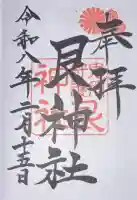 奉拝
艮神社
令和八年二月十五日